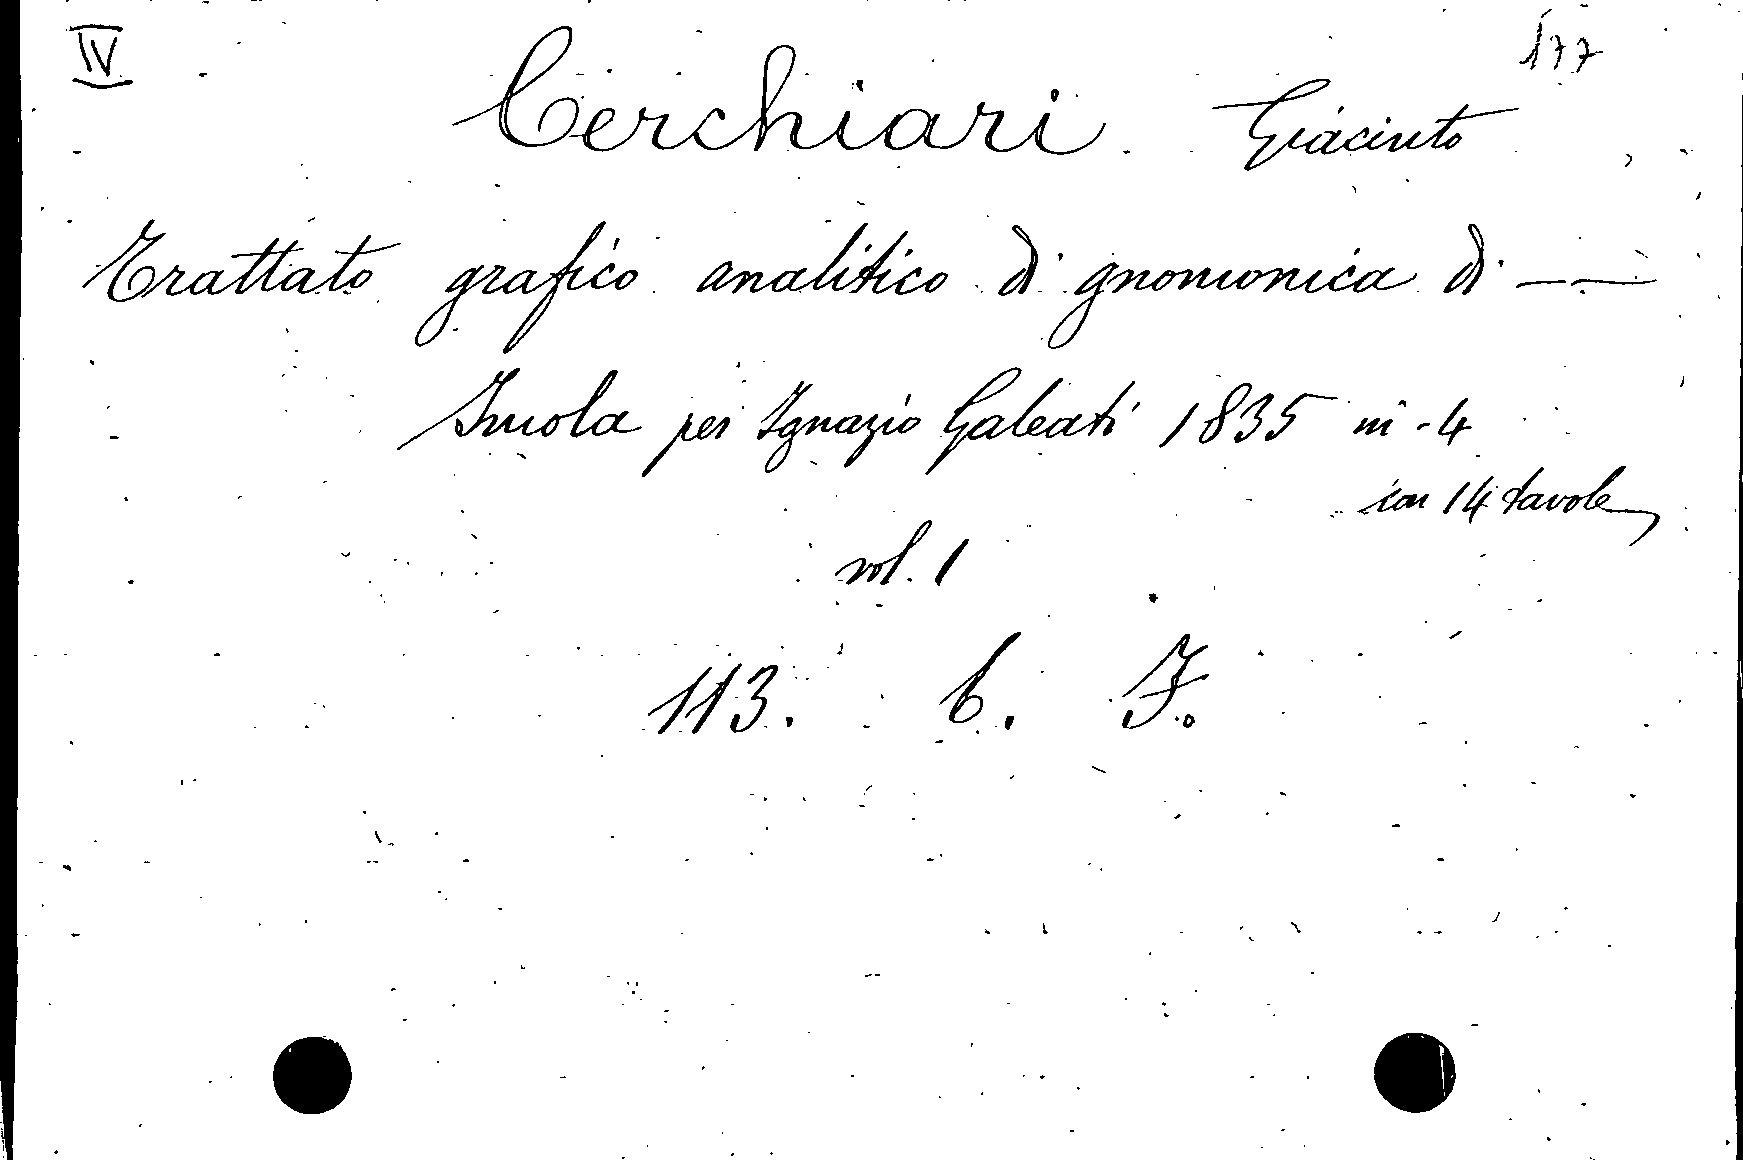 IV
177
Cerchiari Giacinto
Trattato grafico analitico di gnomonica di ——
Imola per Ignazio Galeati 1835 in-4
con 14 tavole
vol. 1
113. 6. F.